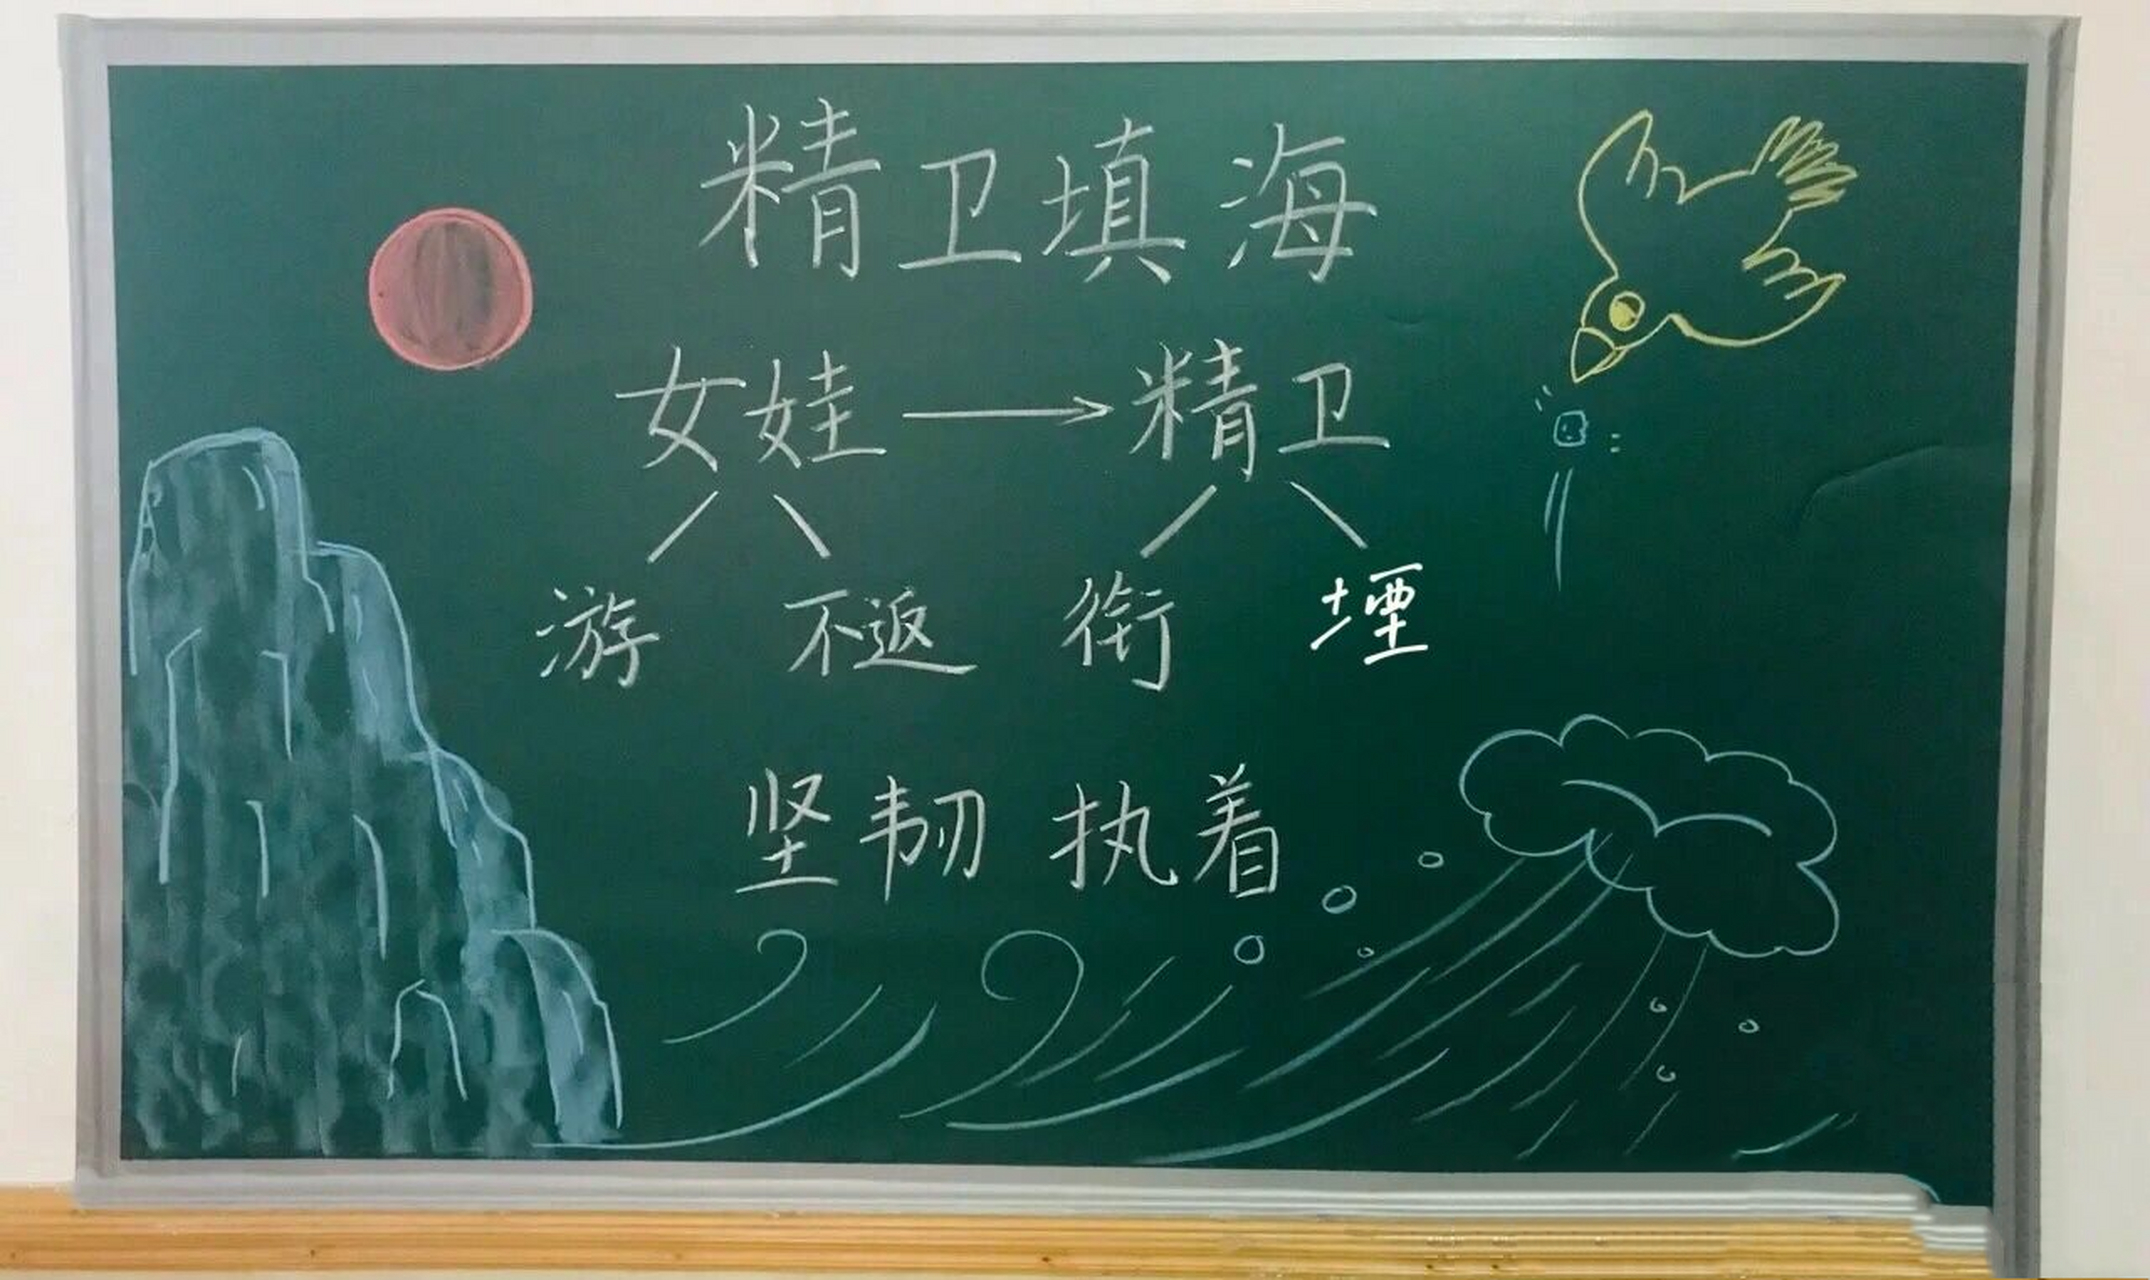 精卫填海
女娃 → 精卫
游 不返 衔 堙
坚韧 执着